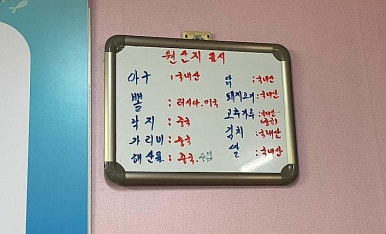 원산지 표시
아구 : 국내산
뽈 : 러시아.미국
낙지 : 중국
가리비 : 중국
해산물 : 중국.수입
닭 : 국내산
돼지고기 : 국내산
고추가루 : 국내산
김치 : 국내산
쌀 : 국내산